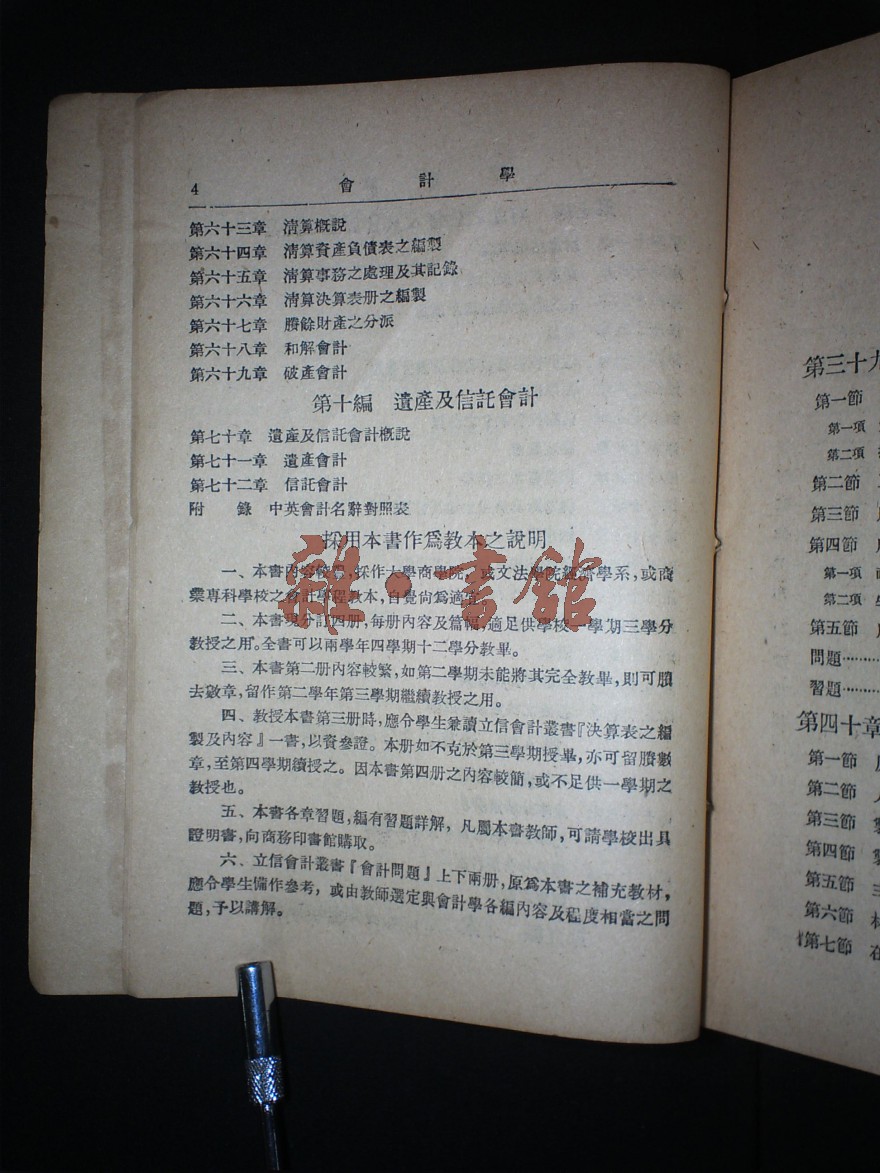 4 會計學
第六十三章 清算概説
第六十四章 清算資產負債表之編製
第六十五章 清算事務之處理及其記錄
第六十六章 清算決算表册之編製
第六十七章 賸餘財產之分派
第六十八章 和解會計
第六十九章 破產會計
第十編 遺產及信託會計
第七十章 遺產及信託會計概說
第七十一章 遺產會計
第七十二章 信託會計
附錄 中英會計名辭對照表
採用本書作爲教本之說明
一、本書內容較豐,採作大學商學院,或文法學院經濟學系,或商
業專科學校之會計學程教本,自覺尙爲適宜。
二、本書現分訂四册,每册內容及篇幅,適足供學校一學期三學分
教授之用。全書可以兩學年四學期十二學分教畢。
三、本書第二册內容較繁,如第二學期未能將其完全教畢,則可賸
去數章,留作第二學年第三學期繼續教授之用。
四、教授本書第三册時,應令學生兼讀立信會計叢書『決算表之編
製及內容』一書,以資參證。本册如不克於第三學期授畢,亦可留賸數
章,至第四學期續授之。因本書第四册之內容較簡,或不足供一學期之
教授也。
五、本書各章習題,編有習題詳解,凡屬本書教師,可請學校出具
證明書,向商務印書館購取。
六、立信會計叢書『會計問題』上下兩册,原爲本書之補充教材,
應令學生備作參考,或由教師選定與會計學各編內容及程度相當之問
題,予以講解。
雜·書館
第三十九
第一節
第一項
第二項
第二節
第三節
第四節
第一項
第二項
第五節
問題
習題
第四十章
第一節
第二節
第三節
第四節
第五節
第六節
第七節